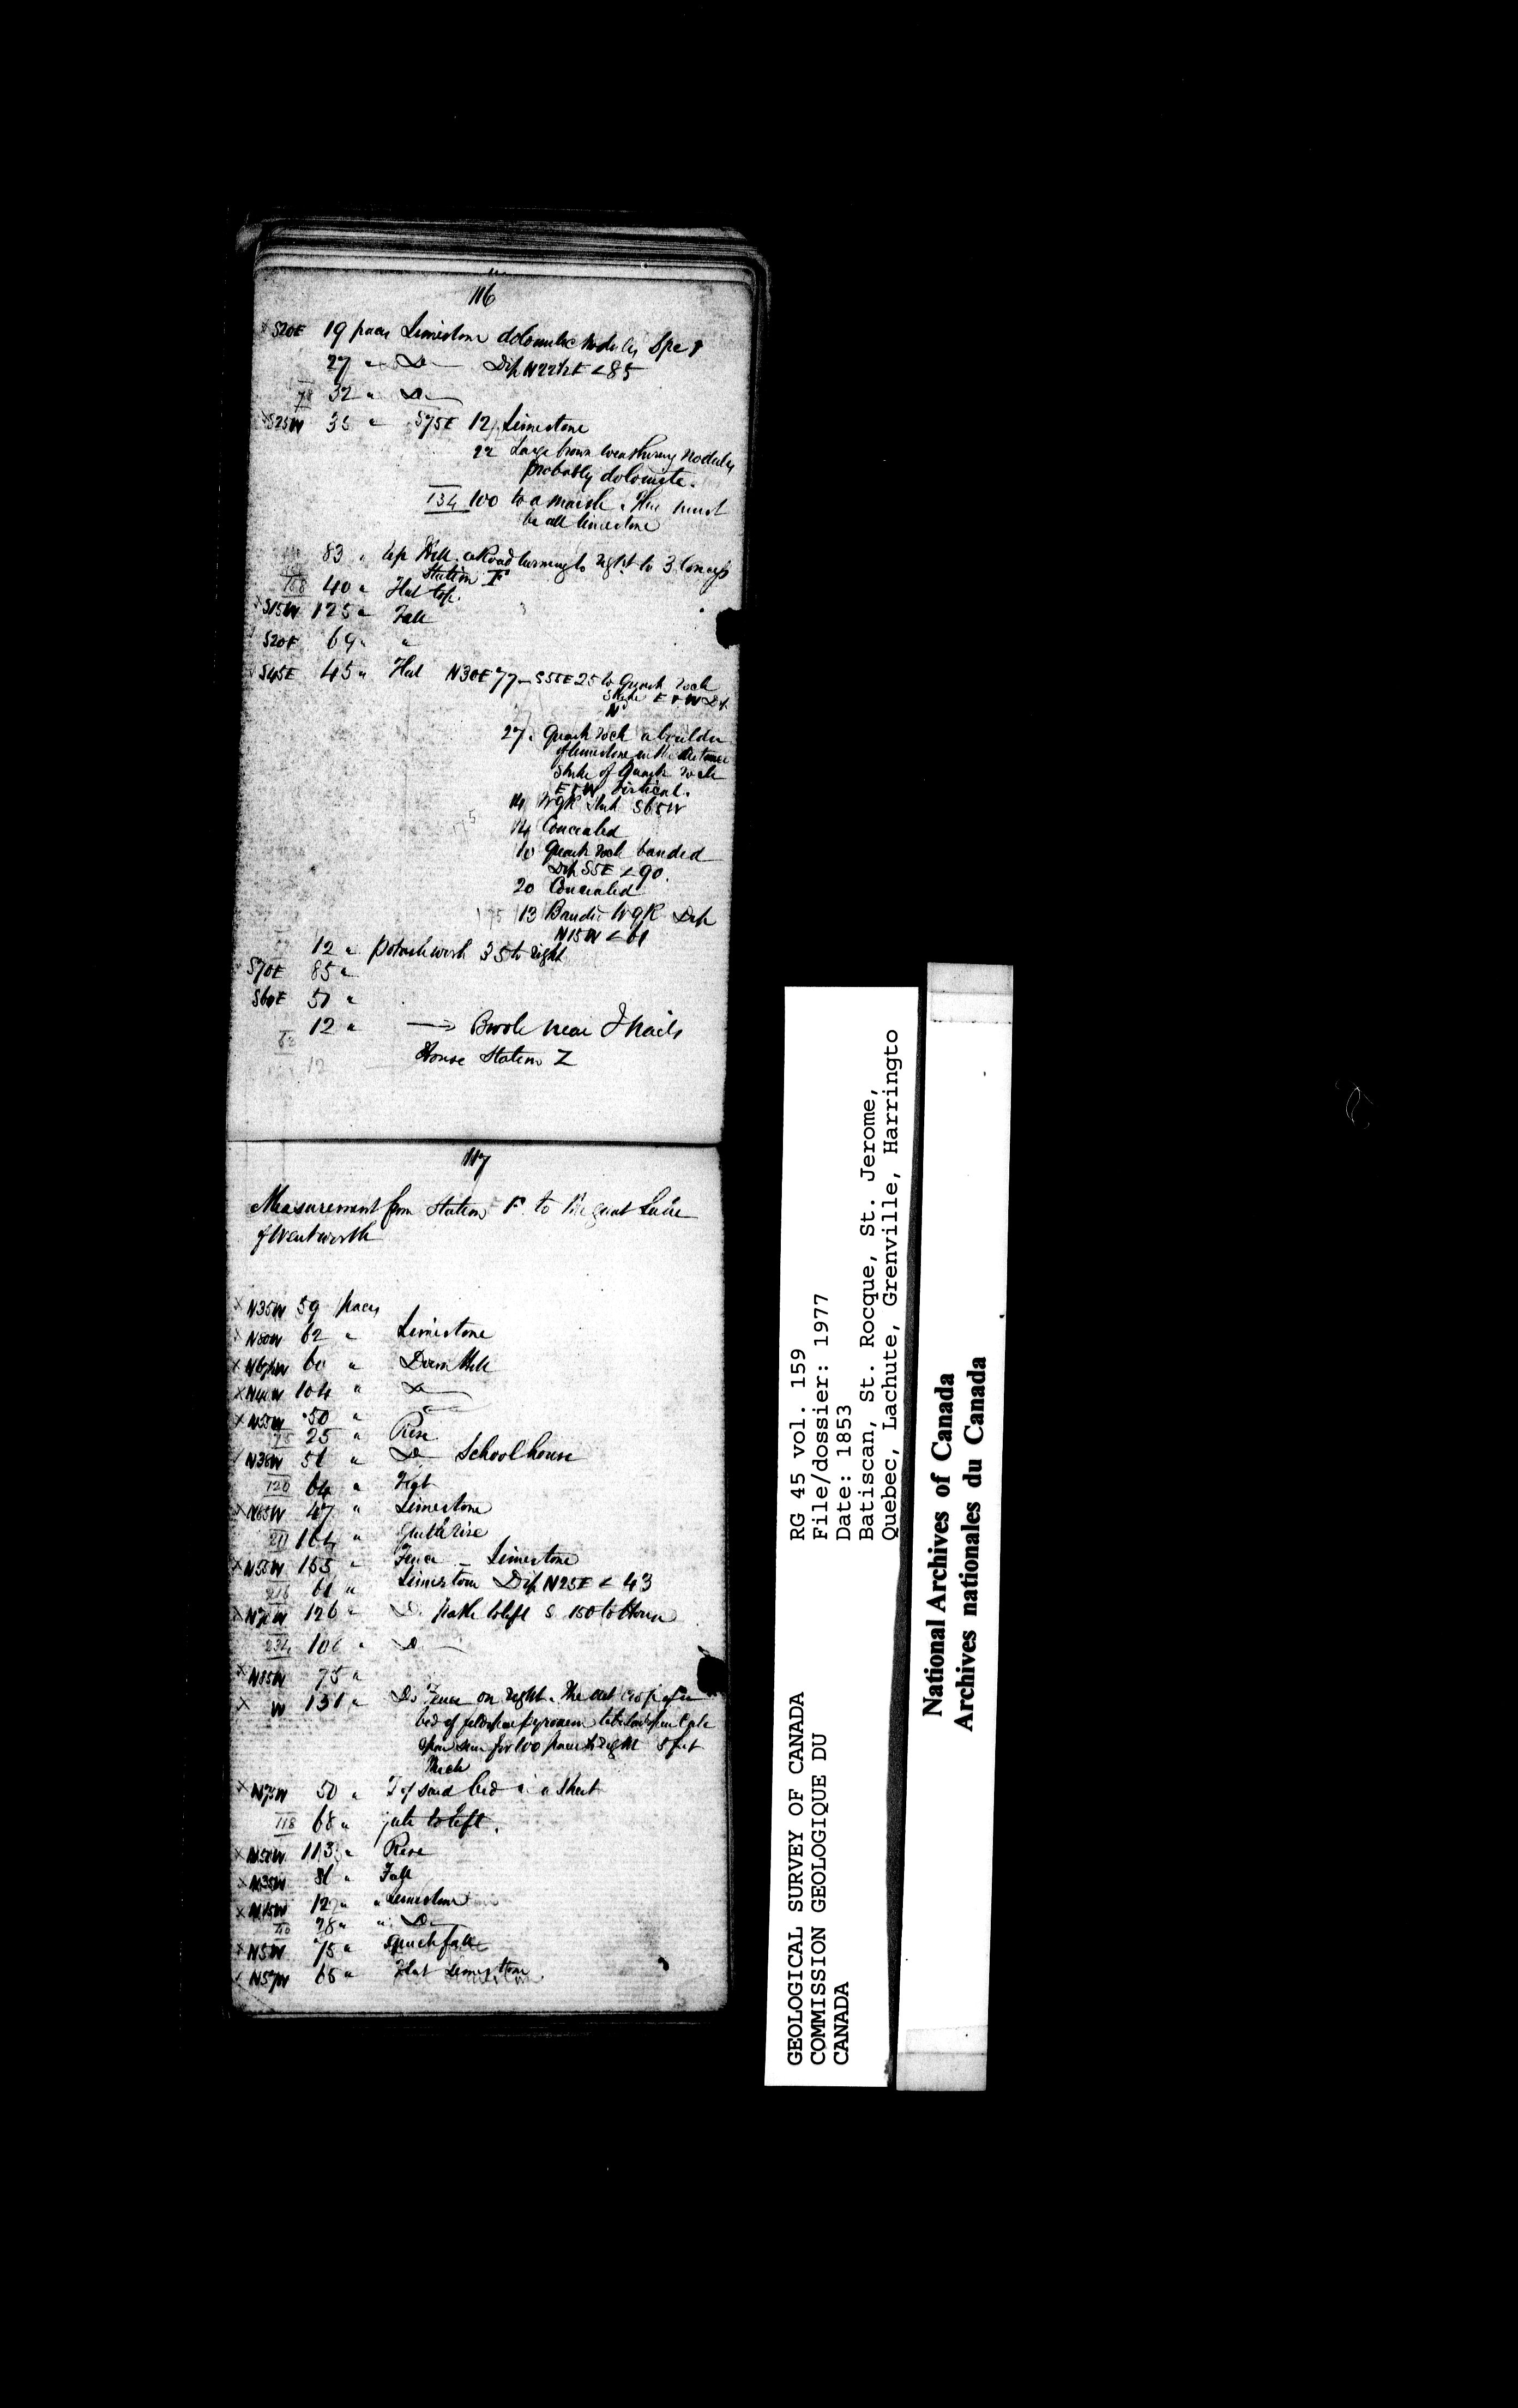 116
S20E 19 paces Limestone dolomitic nodules Spe 8
27 " Do Dip N22½E < 85
78 32 " Do
S25W 35 " S75E 12 Limestone
22 Large brown weathering nodules
probably dolomite.
134 100 to a marsh. This must
be all limestone
83 " top Hill. a Road turning to right to 3 Concess
Station F
158 40 " Flat top.
S15W 125 " Fall
S20E 69 " "
S45E 45 " Flat N30E 77 – S55E 25 to Quartz rock
Strike E & W Dip
N
27. Quartz rock a boulder
of limestone in the distance
Strike of Quartz rock
E & W vertical.
14 WgR Strike S65W
14 Concealed
10 Quartz rock banded
Dip S5E < 90.
20 Concealed
175 13 Banded WgR Dip
N15W < 61
12 " Potash work 35 to right
S70E 85 "
S60E 51 "
12 " → Brook near
63
12
House Station Z
117
Measurement from Station F. to the great Lake
of Wentworth
N35W 59 paces
N50W 62 " Limestone
60 " Down Hill
N40W 104 " Do
N55W 50 "
75 25 " Rise
N36W 56 " Do School house
120 64 "
N65W 47 " Limestone
211 164 " Gentle rise
N55W 155 " Fence – Limestone
216 61 " Limestone Dip N25E < 43
N70W 126 " Do. path to left S 150 to House
234 106 " Do
N85W 75 "
W 131 " Do Fence on right. The out crop of a
bed of feldspar pyroxene
for 100 paces to right 8 feet
thick
N75W 50 " of said bed in a sheet
118 68 " gate to left.
N50W 113 " Rise
N35W 81 " Fall
N15W 12 " Limestone
28 " " Do
N5W 75 " Quick fall
N57W 65 " Flat Limestone.
GEOLOGICAL SURVEY OF CANADA
COMMISSION GEOLOGIQUE DU
CANADA
RG 45 vol. 159
File/dossier: 1977
Date: 1853
Batiscan, St. Rocque, St. Jerome,
Quebec, Lachute, Grenville, Harringto
National Archives of Canada
Archives nationales du Canada